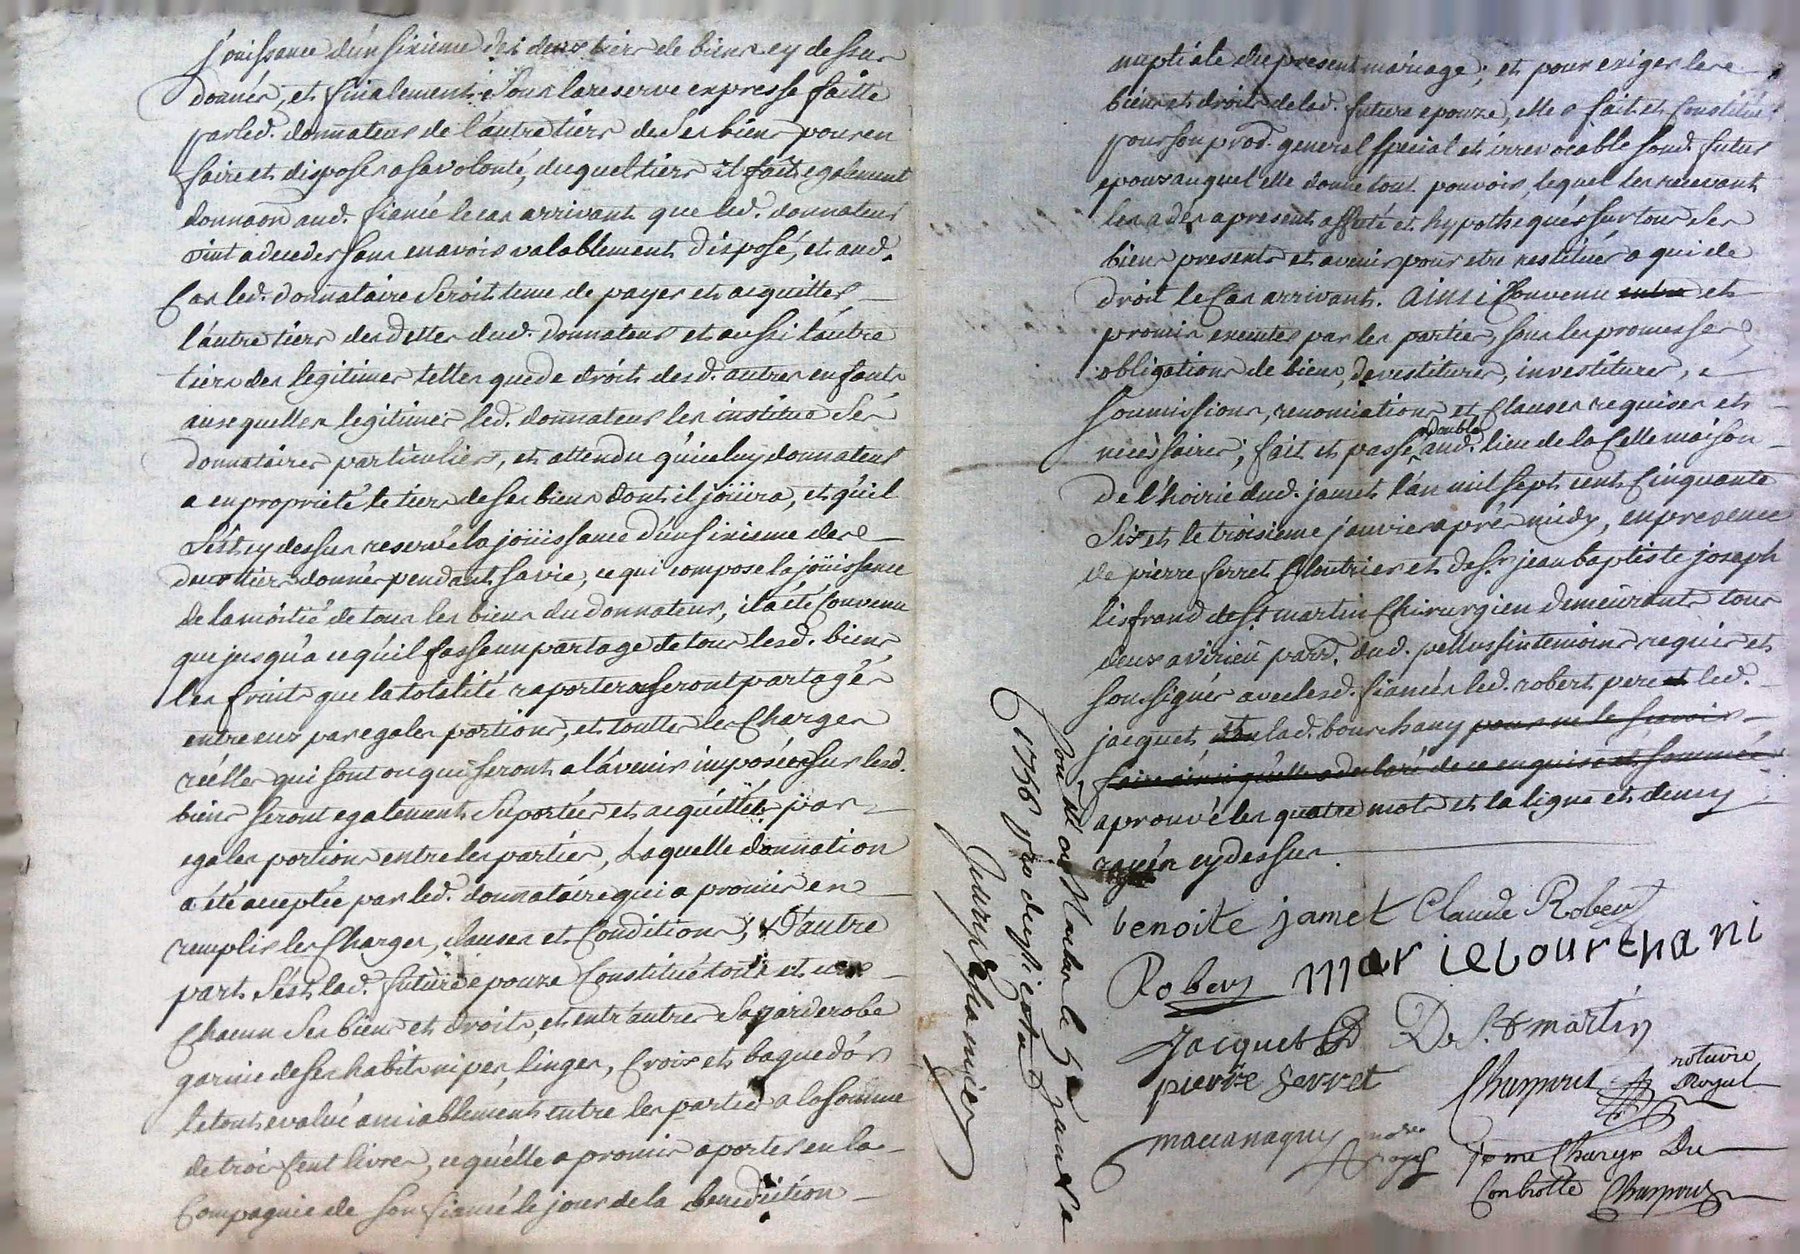 jouissance d'un sixieme des deux tiers de biens cy dessus
donnés, et finalement sous la reserve expresse faitte
par led. donnateur de l'autre tiers de ses biens pour en
faire et disposer a sa volonté, duquel tiers il fait egalement
donnaon aud. fiancé le cas arrivant que led. donnateur
vint a deceder sans en avoir valablement disposé, et aud.
cas led. donnataire seroit tenu de payer et acquitter
l'autre tiers des dettes dud. donnateur et aussi l'autre
tiers des legitimes telles que de droit desd. autres enfants
ausquelles legitimes led. donnateur les institue ses
donnataires particuliers, et attendu qu'iceluy donnateur
a en proprieté le tiers de ses biens dont il joüira, et qu'il
s'est cy dessus reservé la joüissance d'un sixieme des
deux tiers donnés pendant sa vie, ce qui compose la joüissance
de la moitié de tous les biens du donnateur, il a été convenu
que jusqu'a ce qu'il fasse un partage de tous lesd. biens
les fruits que la totalité raportera seront partagés
entre eux par egales portions, et touttes les charges
réelles qui sont ou qui seront a l'avenir imposées sur lesd.
biens seront egalement suportées et acquittées par
egales portions entre les parties, Laquelle donnation
a été acceptée par led. donnataire qui a promis en
remplir les charges, clauses et conditions; & D'autre
part s'est lad. future epouze constitué tous et uns
chacun ses biens et droits, et entr'autres sa garderobe
garnie de ses habits nipes, linges, croix et bague d'or
le tout evalué amiablement entre les parties a la somme
de trois cent livres, ce qu'elle a promis aporter en la
compagnie de son fiancé le jour de la benediction
nuptiale du present mariage; et pour exiger les
biens et droits de lad. future epouze, elle a fait et constitué
pour son prod. general special et irrevocable sond. futur
epoux auquel elle donne tout pouvoir, lequel les recevant
les a des apresent assuré et hypothequés sur tous ses
biens presents et avenir pour etre restitués a qui de
droit le cas arrivant. Ainsi convenu entre et
promis executer par les parties, sous les promesses
obligations de biens, devestitures, investitures,
soumissions, renonciations et clauses requises et
necessaires; fait et passé double aud. lieu de la Celle maison
de l'hoirie dud. jamet l'an mil sept cent cinquante
six et le troisieme janvier aprés midy, en presence
de pierre serret Cloutrier et de sr. jean baptiste joseph
lisfrand de st martin Chirurgien demeurants tous
deux a virieu parr. dud. pellussin temoins requis et
soussignés avec lesd. fiancés led. robert pere et led.
jacquet et la lad. bourchany pour ne le sçavoir
faire ainsi qu'elle a declaré de ce enquise et sommée
aprouvé les quatre mots et la ligne et demy
rayés cy dessus
benoite jamet Claude Robert
Robert mar ie bourchani
Jacquet De St martin
pierre serret Chuzpout notaire Royal
Con.llé au le 5e janv.
1756